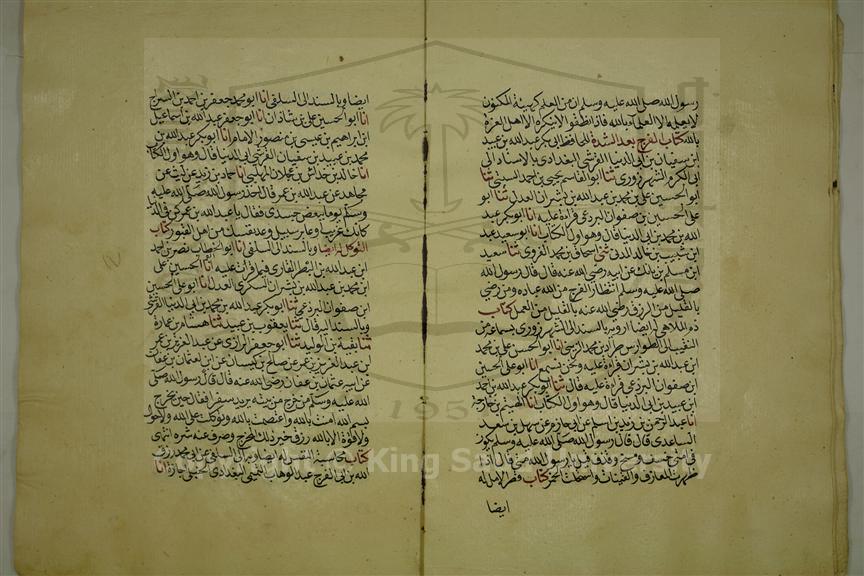 رسول الله صلى الله عليه وسلم ان من العلم كهيئة المكنون
لا يعلمه الا العلماء بالله فاذا نطقوا لا ينكره الا اهل الغرة
بالله كتاب الفرج بعد الشدة للحافظ ابى بكر عبد الله بن عبيد
ابن سفيان بن ابى الدنيا القرشى البغدادى بالاسناد الى
ابى الكرم الشهرزورى ثنا ابو القاسم يحيى بن احمد السيبى ثنا
ابو الحسين على بن محمد بن عبد الله بن بشران العدل ثنا ابو
على الحسين بن صفوان البردعى قراءة عليه انا ابو بكر عبد
الله بن محمد بن ابى الدنيا قال وهو اول الكتاب انا ابو سعيد عبد
ابن شبيب بن خالد المدنى ثنى اسحاق بن محمد الفروى ثنا سعيد
ابن مسلم بن بانك عن ابيه رضى الله عنه قال قال رسول الله
صلى الله عليه وسلم انتظار الفرج من الله عبادة ومن رضى
بالقليل من الرزق رضى الله عنه بالقليل من العمل كتاب
ذم الملاهى له ايضا ارويه بالسند الى الشهرزورى بسماعه من
النقيب ابى الفوارس طراد بن محمد الزينبى انا ابو الحسن على بن محمد
ابن عبد الله بن بشران قراءة عليه ونحن نسمع انا ابو على الحسين
ابن صفوان البردعى قراءة عليه قال ثنا ابو بكر عبد الله بن محمد
ابن عبيد بن ابى الدنيا قال وهو اول الكتاب انا الهيثم بن خارجة
انا عبد الرحمن بن زيد بن اسلم عن ابى حازم عن سهل بن سعد
الساعدى قال قال رسول الله صلى الله عليه وسلم يكون
فى امتى خسف ومسخ وقذف قيل يا رسول الله متى قال اذا
ظهرت المعازف والقينات واستحلت الخمر كتاب قصر الامل له
ايضا
ايضا وبالسند الى السلفى انا ابو محمد جعفر بن احمد بن السراج
انا ابو الحسين على بن شاذان انا ابو جعفر عبد الله بن اسماعيل
ابن ابراهيم بن عيسى بن منصور الامام انا ابو بكر عبد الله بن
محمد بن عبيد بن سفيان القرشى بن ابى الدنيا قال وهو اول الكتاب
انا خالد بن خداش بن عجلان المهلبى انا حماد بن زيد عن ليث عن
مجاهد عن عبد الله بن عمر قال اخذ رسول الله صلى الله عليه
وسلم يوما ببعض جسدى فقال يا عبد الله بن عمر كن فى الدنيا
كانك غريب او عابر سبيل وعد نفسك من اهل القبور كتاب
التوكل له ايضا وبالسند الى السلفى انا ابو الخطاب نصر بن احمد
ابن عبد الله بن البطر القارى فيما قرأت عليه انا ابو الحسين على
ابن محمد بن عبد الله بن بشران السكرى العدل انا ابو على الحسين
ابن صفوان البردعى ثنا ابو بكر عبد الله بن محمد بن ابى الدنيا القرشى
وبالسند اليه قال ثنا يعقوب بن عبيد ثنا هشام بن عمارة
ثنا بقية بن الوليد ثنا ابو جعفر الرازى عن عبد العزيز بن عمر
ابن عبد العزيز عن صالح بن كيسان عن ابن لعثمان بن عفان
عن ابيه عثمان بن عفان رضى الله عنه قال قال رسول الله صلى
الله عليه وسلم من خرج من بيته يريد سفرا فقال حين يخرج
بسم الله امنت بالله واعتصمت بالله وتوكلت على الله ولا حول
ولا قوة الا بالله رزق خير ذلك المخرج وصرف عنه شره انتهى
كتاب محاسبة النفس له ايضا وبه الى السلفى عن ابى محمد رزق
الله بن ابى الفرج عبد الوهاب التميمى البغدادى الحنبلى اجازة انا
Copyright © King Saud University
195